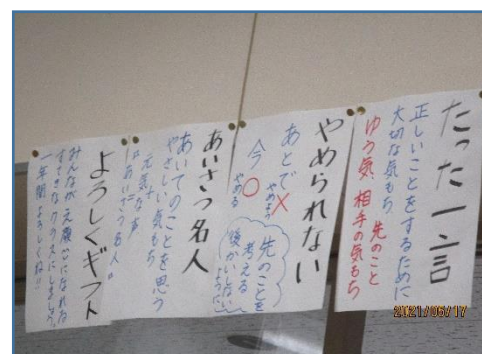 たった一言
正しいことをするために
大切な気もち
ゆう気 先のこと
相手の気もち
やめられない
あとで
やめる ×
今 ○
やめる
先のことを
考える
後かいしない
ように。
あいさつ名人
あいてのことを思う
やさしい気もち
元気な声
"あいさつ名人"
よろしくギフト
みんながえ顔になれる
すてきなクラスにしましょう。
一年間よろしくね!!
2021/06/17